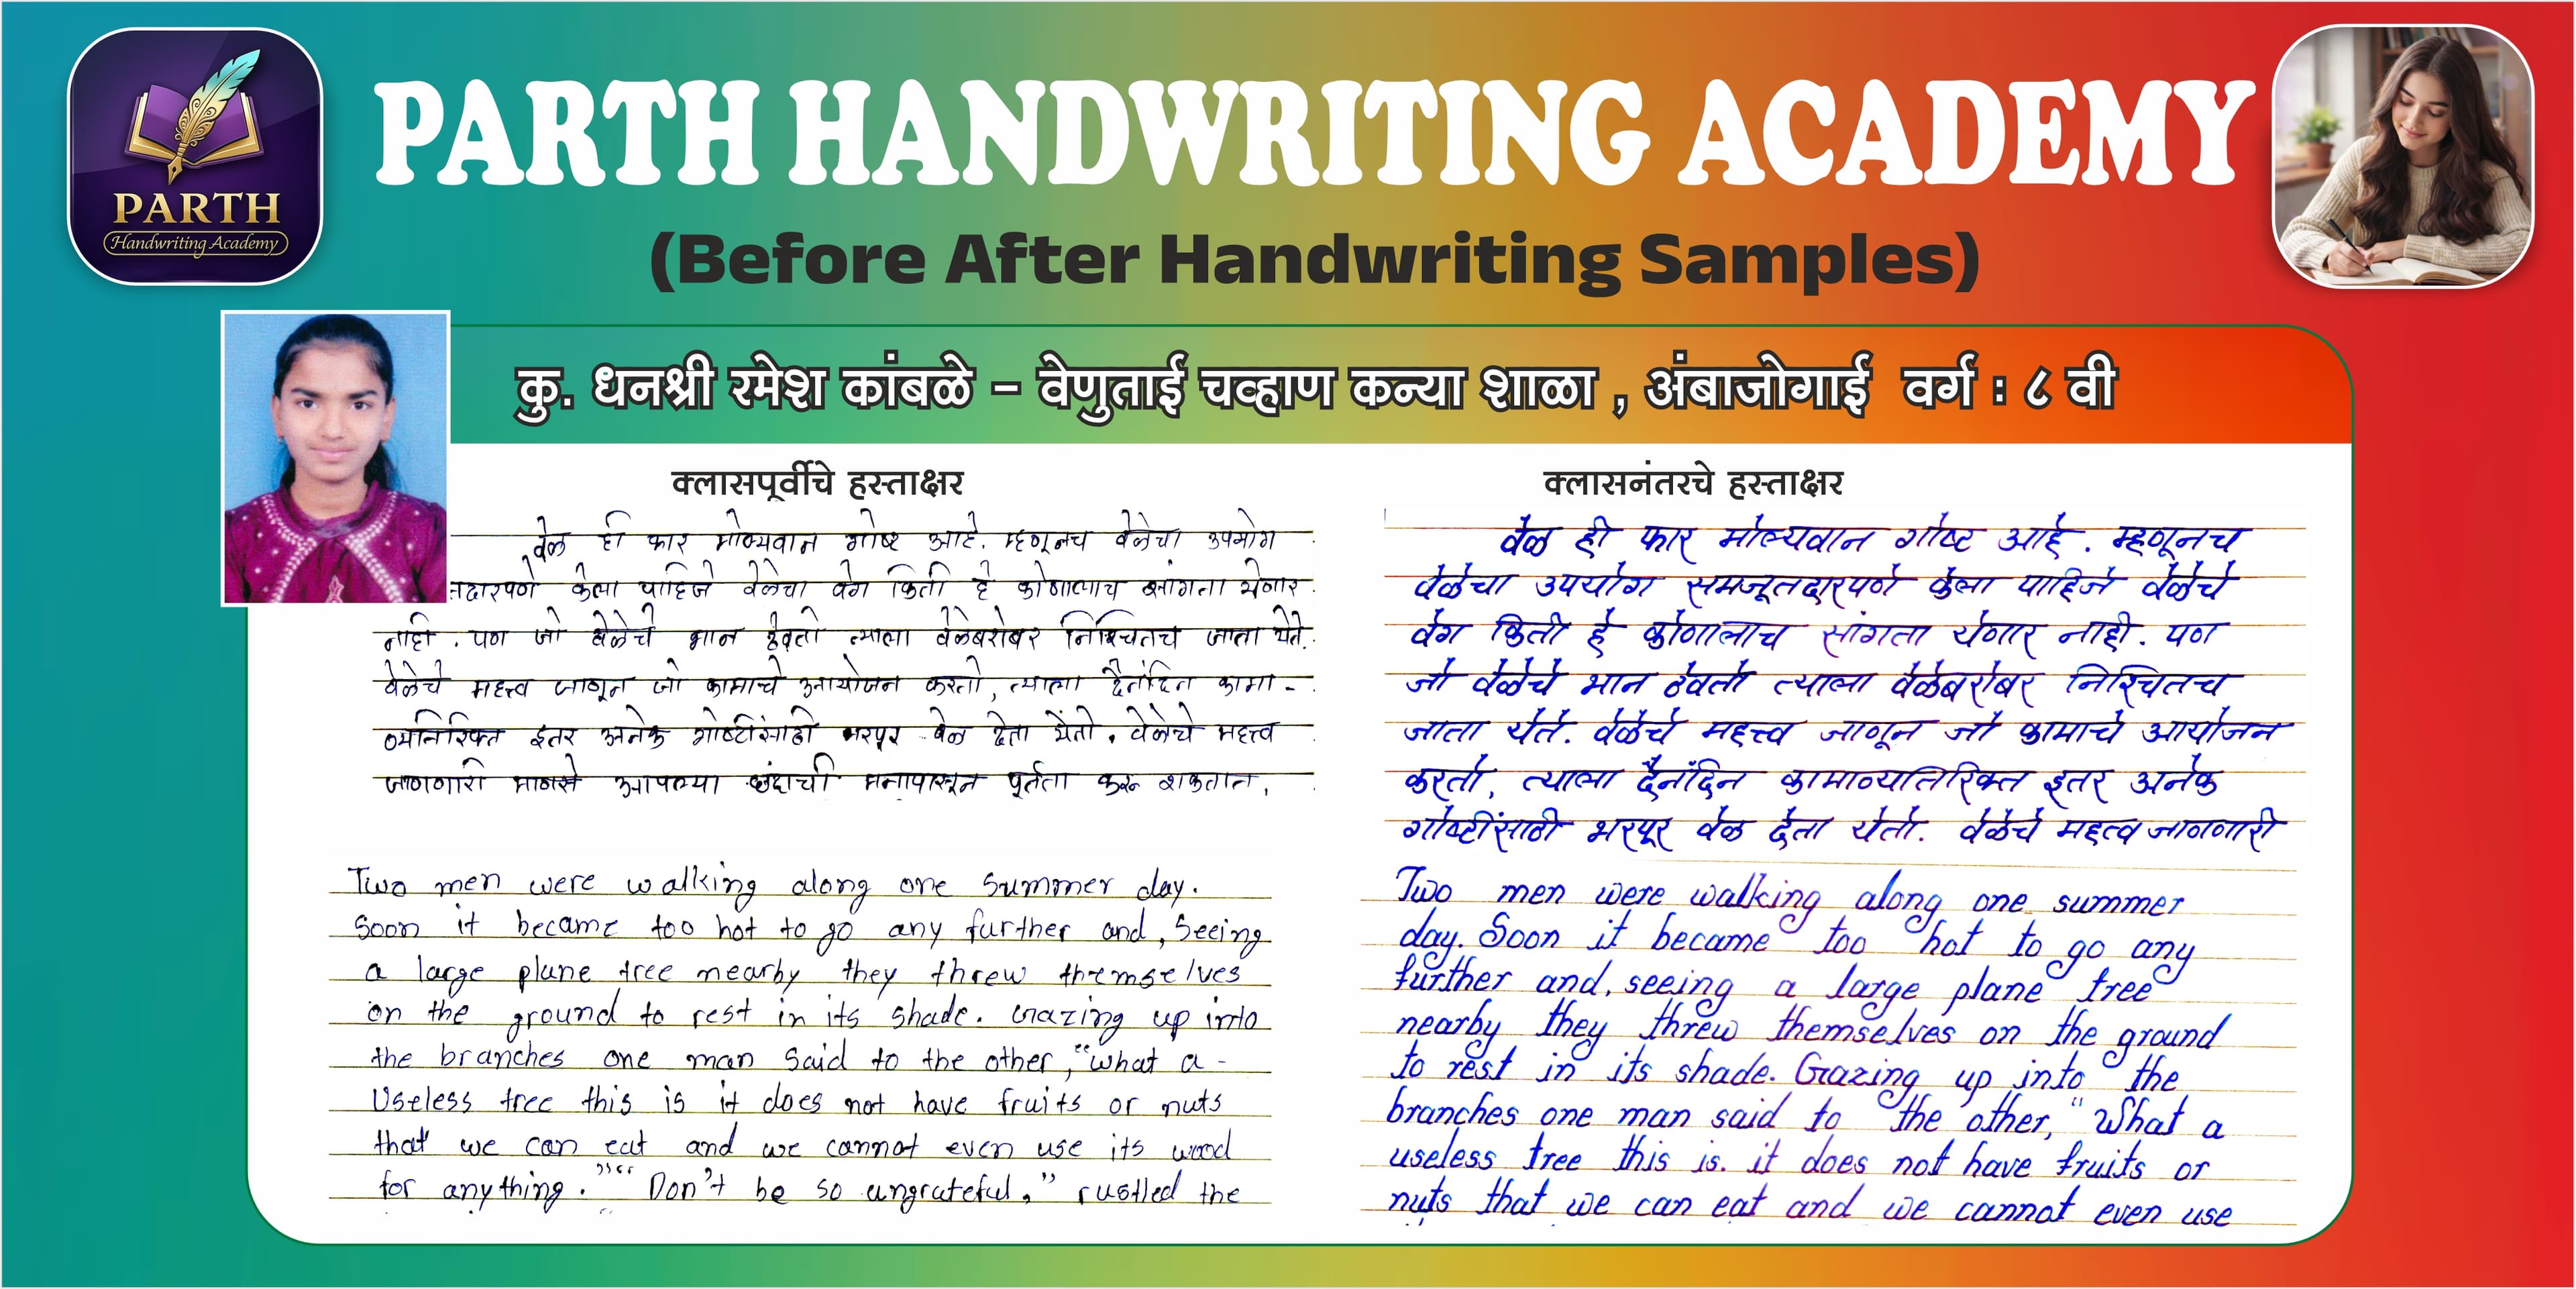 PARTH HANDWRITING ACADEMY
PARTH
Handwriting Academy
(Before After Handwriting Samples)
कु. धनश्री रमेश कांबळे - वेणुताई चव्हाण कन्या शाळा , अंबाजोगाई वर्ग : ८ वी
क्लासपूर्वीचे हस्ताक्षर
वेळ ही फार मोल्यवान गोष्ट आहे. म्हणूनच वेळेचा उपयोग
दारपणे केला पाहिजे वेळेचा वेग किती हे कोणालाच सांगता येणार
नाही . पण जो वेळेचे भान ठेवतो त्याला वेळेबरोबर निश्चितच जाता येते.
वेळेचे महत्त्व जाणून जो कामाचे आयोजन करतो, त्याला दैनंदिन कामा -
व्यतिरिक्त इतर अनेक गोष्टींसाठी भरपूर वेळ देता येतो. वेळेचे महत्त्व
जाणणारी माणसे आपल्या छंदाची मनापासून पूर्तता करू शकतात.
Two men were walking along one summer day.
Soon it became too hot to go any further and, seeing
a large plane tree nearby they threw themselves
on the ground to rest in its shade. Grazing up into
the branches one man said to the other, "what a -
Useless tree this is it does not have fruits or nuts
that we can eat and we cannot even use its wood
for anything." "Don't be so ungrateful," rustled the
क्लासनंतरचे हस्ताक्षर
वेळ ही फार मोल्यवान गोष्ट आहे. म्हणूनच
वेळेचा उपयोग समजूतदारपणे केला पाहिजे वेळेचे
वेग किती हे कोणालाच सांगता येणार नाही. पण
जो वेळेचे भान ठेवतो त्याला वेळेबरोबर निश्चितच
जाता येते. वेळेचे महत्त्व जाणून जो कामाचे आयोजन
करतो, त्याला दैनंदिन कामाव्यतिरिक्त इतर अनेक
गोष्टींसाठी भरपूर वेळ देता येतो. वेळेचे महत्व जाणणारी
Two men were walking along one summer
day. Soon it became too hot to go any
further and, seeing a large plane tree
nearby they threw themselves on the ground
to rest in its shade. Grazing up into the
branches one man said to the other, "What a
useless tree this is. it does not have fruits or
nuts that we can eat and we cannot even use